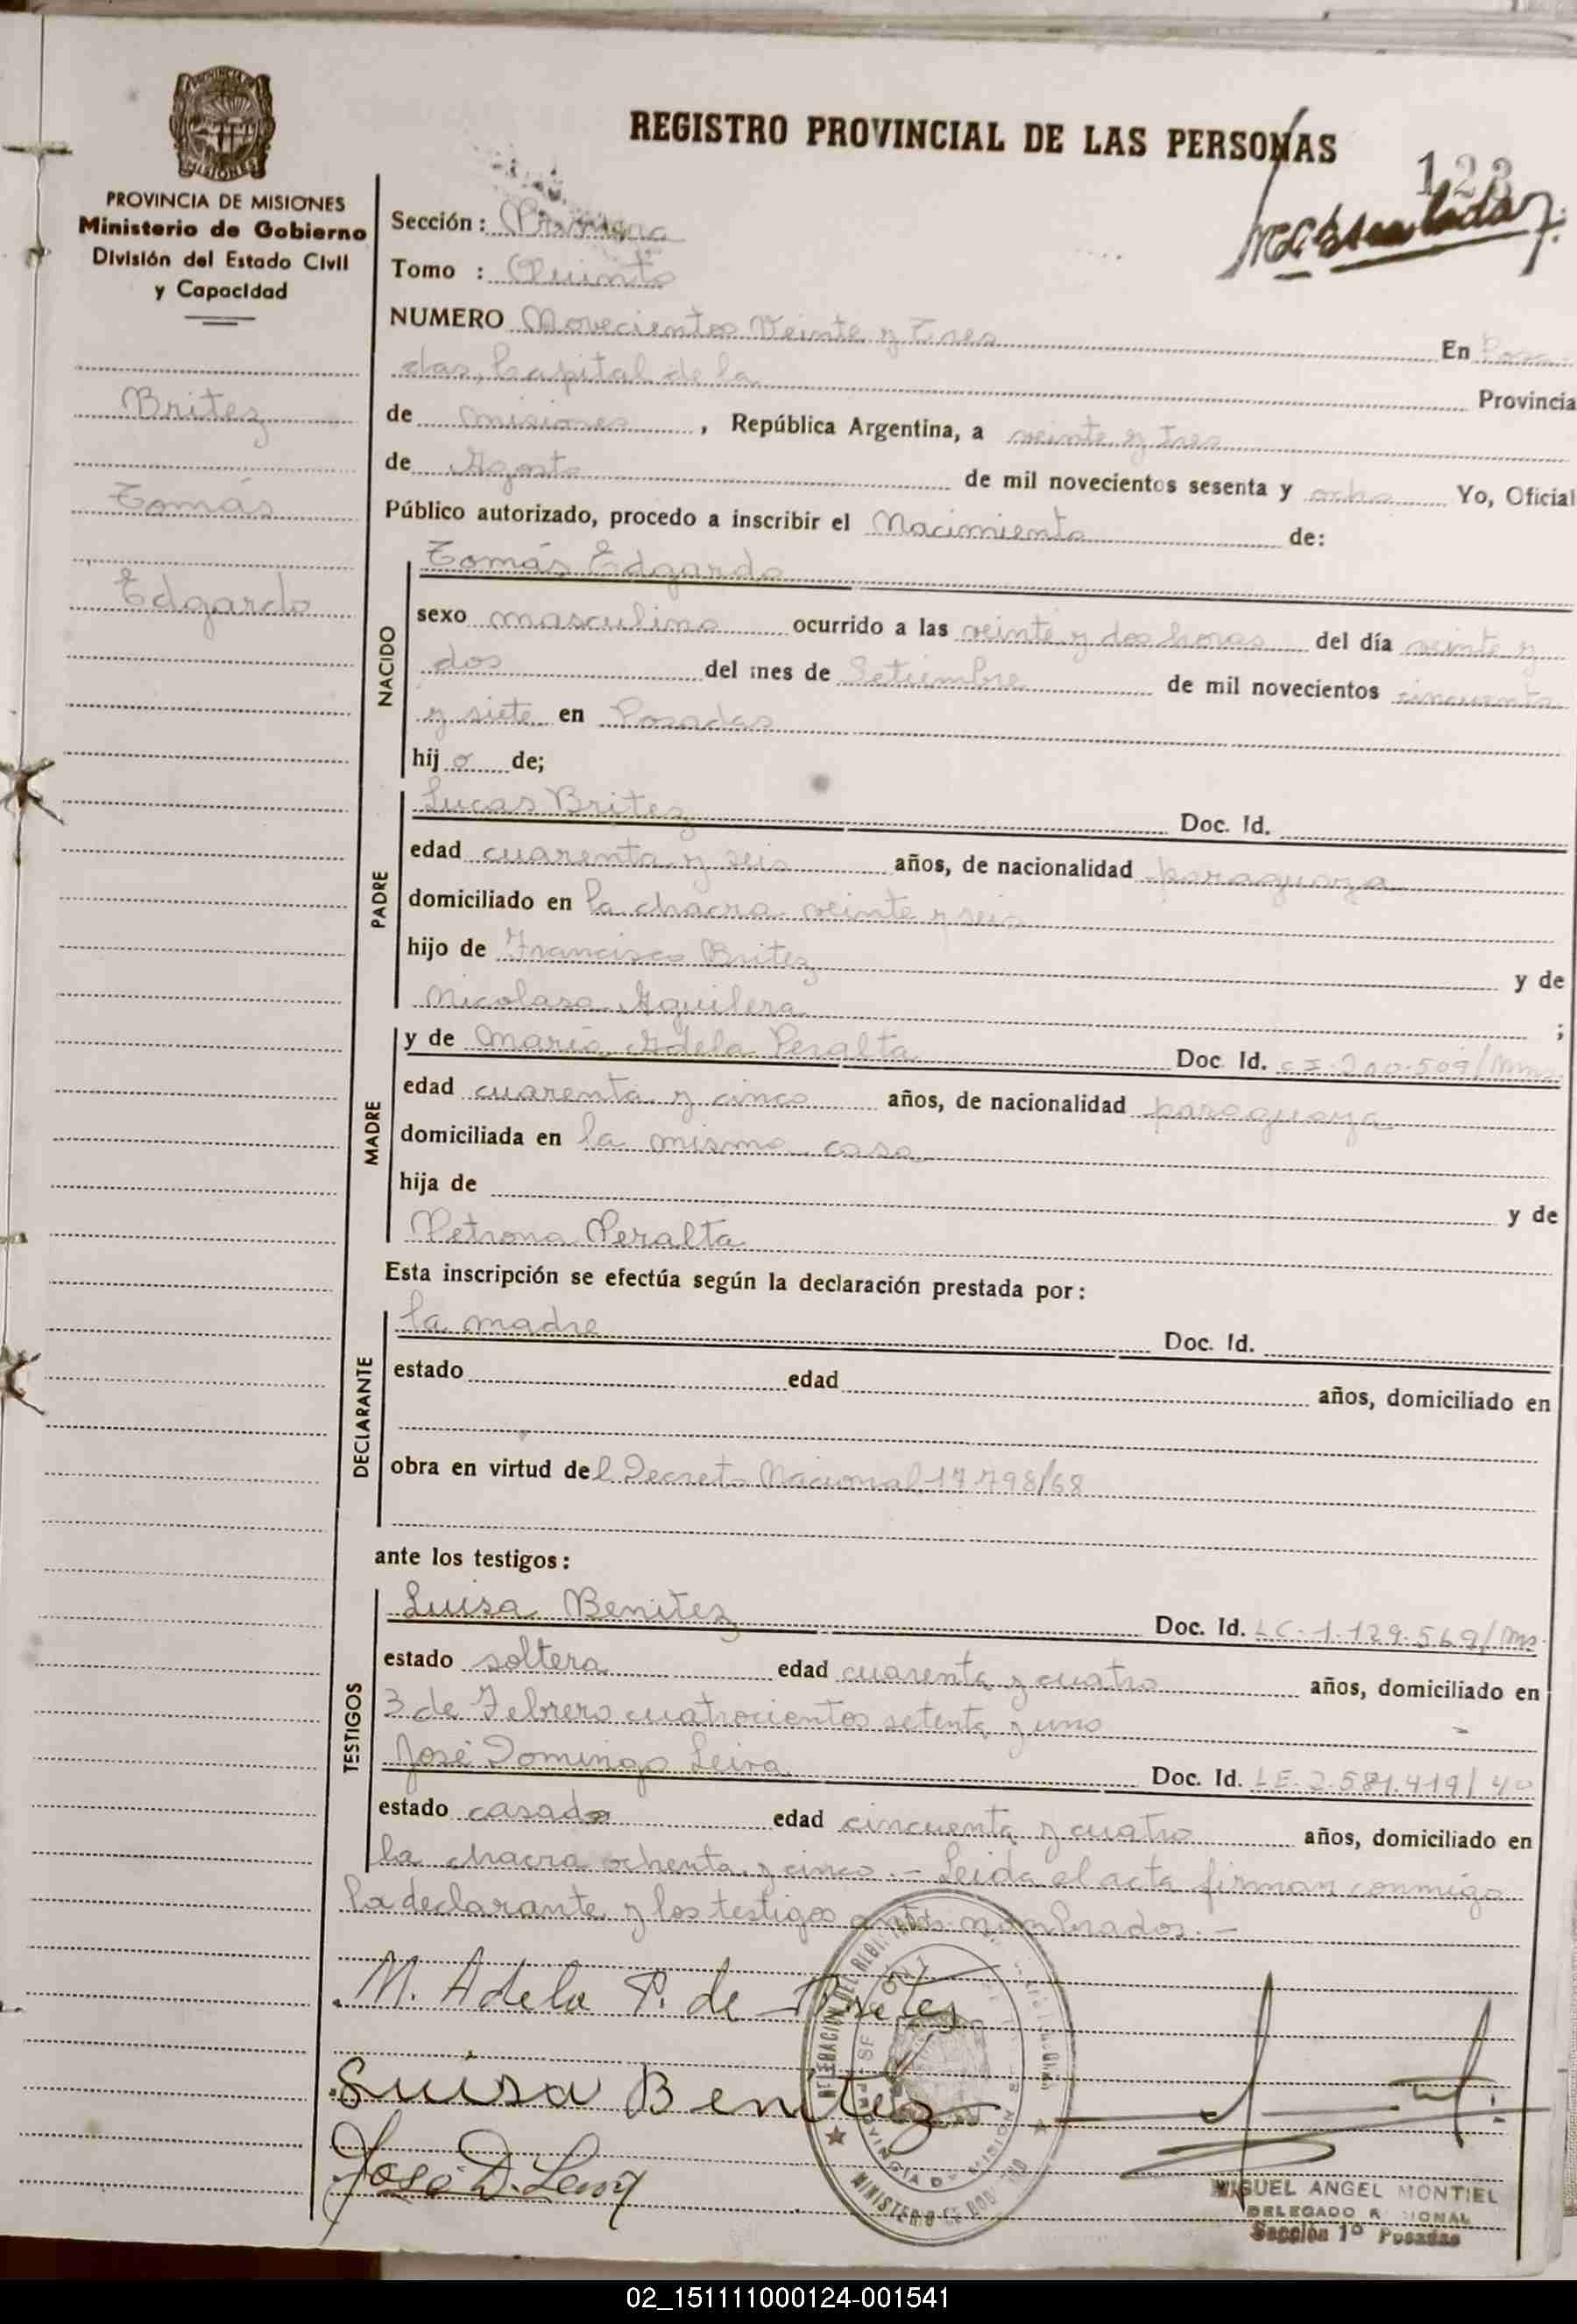 REGISTRO PROVINCIAL DE LAS PERSONAS
123
PROVINCIA DE MISIONES
Ministerio de Gobierno
División del Estado Civil
y Capacidad
Britez
Tomás
Edgardo
Sección: Primera
Tomo : Quinto
NUMERO Novecientos Veinte y Tres En Posa-
das, Capital de la Provincia
de misiones, República Argentina, a veinte y tres
de Agosto de mil novecientos sesenta y ocho Yo, Oficial
Público autorizado, procedo a inscribir el Nacimiento de:
NACIDO
Tomás Edgardo
sexo masculino ocurrido a las veinte y dos horas del día veinte y
dos del mes de Setiembre de mil novecientos cincuenta
y siete en Posadas
hij o de;
PADRE
Lucas Britez Doc. Id.
edad cuarenta y seis años, de nacionalidad paraguaya
domiciliado en la chacra veinte y seis
hijo de Francisco Britez y de
Nicolasa Aguilera ;
MADRE
y de María Adela Peralta Doc. Id. C.I. 210.509/Mnes
edad cuarenta y cinco años, de nacionalidad paraguaya
domiciliada en la misma casa
hija de y de
Petrona Peralta
Esta inscripción se efectúa según la declaración prestada por:
DECLARANTE
la madre Doc. Id.
estado edad años, domiciliado en
obra en virtud del Decreto Nacional 17.798/68
ante los testigos:
TESTIGOS
Luisa Benitez Doc. Id. LC. 1.129.569/Mns.
estado soltera edad cuarenta y cuatro años, domiciliado en
3 de Febrero cuatrocientos setenta y uno
José Domingo Leiva Doc. Id. LE. 2.581.419/40
estado casado edad cincuenta y cuatro años, domiciliado en
la chacra ochenta y cinco.- Leida el acta firman conmigo
la declarante y los testigos antes nombrados.-
M. Adela P. de Britez
Luisa Benítez
José D. Leiva
MIGUEL ANGEL MONTIEL
DELEGADO R IONAL
Sección 1º Posadas
02_151111000124-001541